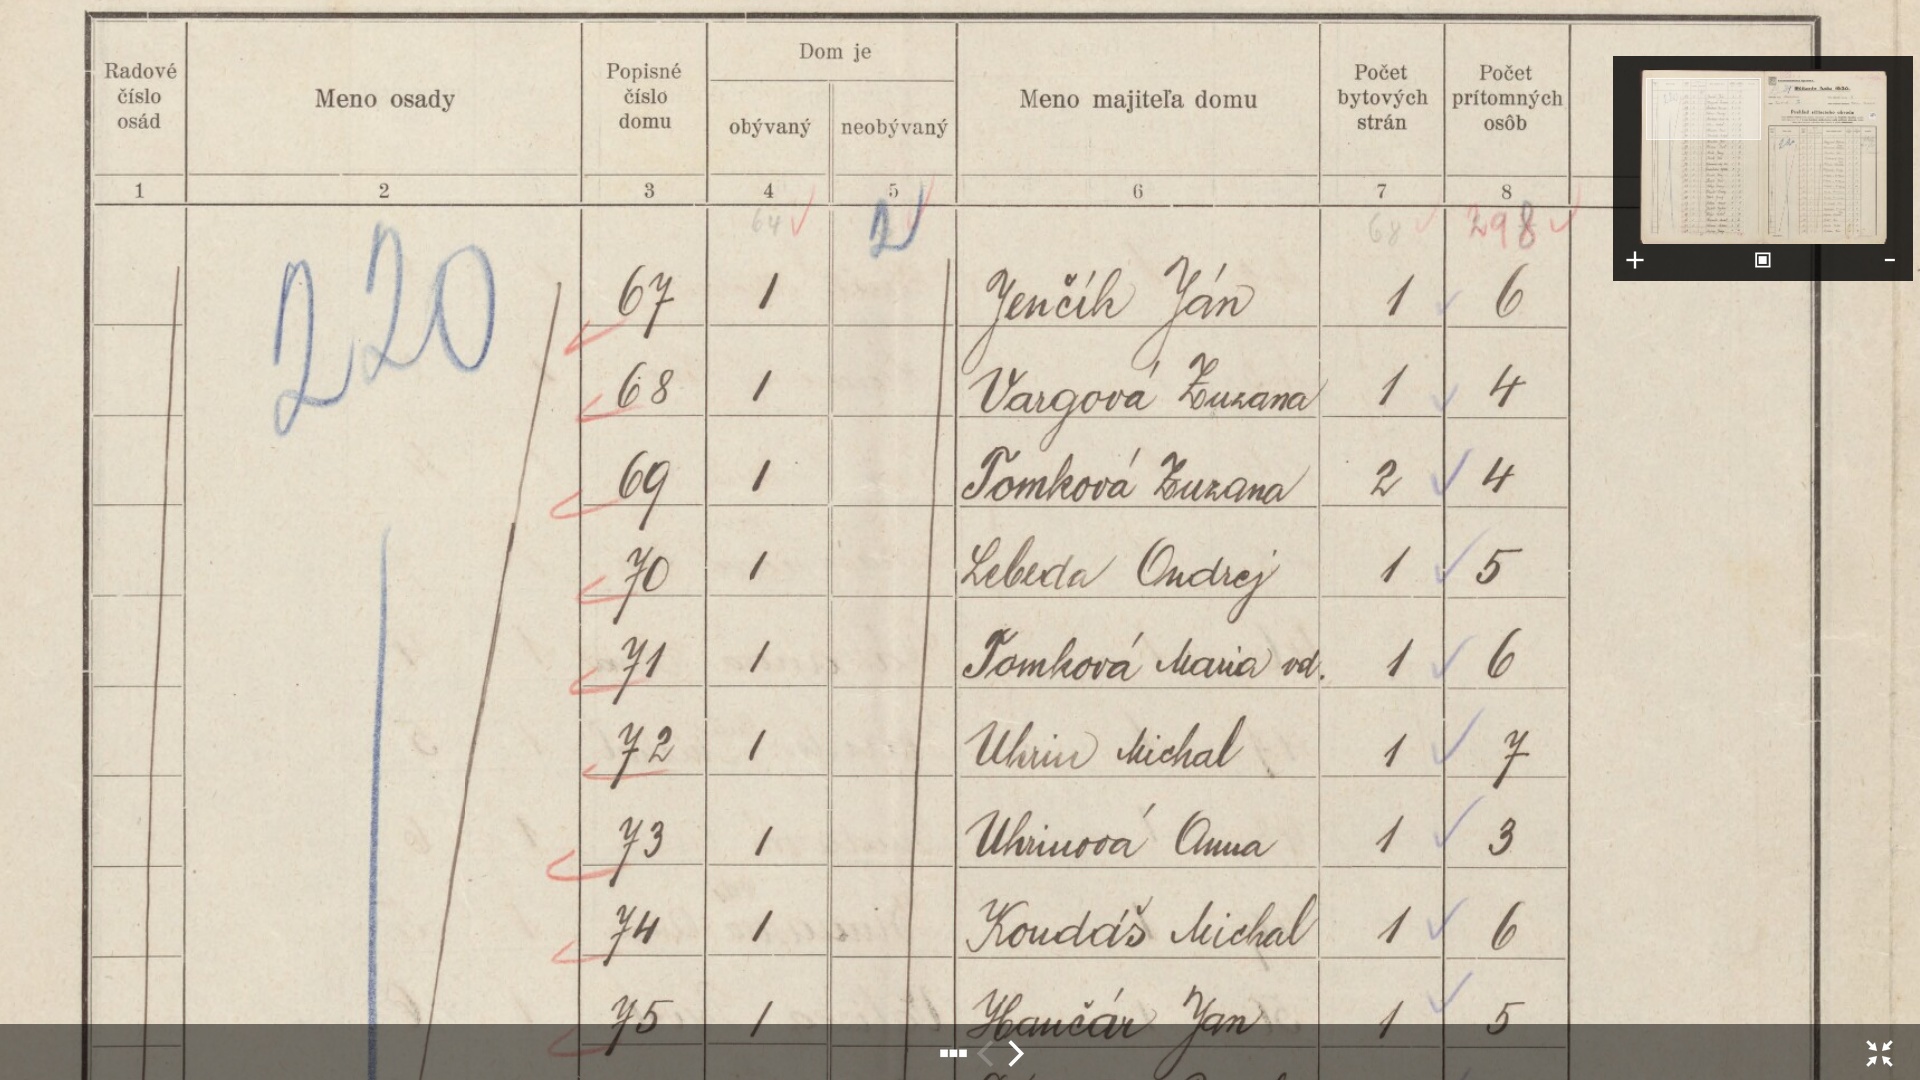 Radové číslo osád | Meno osady | Popisné číslo domu | Dom je | Meno majiteľa domu | Počet bytových strán | Počet prítomných osôb
obývaný | neobývaný
1 | 2 | 3 | 4 | 5 | 6 | 7 | 8
64 | 2 | 68 | 298
220
67 | 1 | Jenčík Ján | 1 | 6
68 | 1 | Vargová Zuzana | 1 | 4
69 | 1 | Tomková Zuzana | 2 | 4
70 | 1 | Lebeda Ondrej | 1 | 5
71 | 1 | Tomková Maria vd. | 1 | 6
72 | 1 | Uhrin Michal | 1 | 7
73 | 1 | Uhrinová Anna | 1 | 3
74 | 1 | Koudáš Michal | 1 | 6
75 | 1 | Hančár Jan | 1 | 5